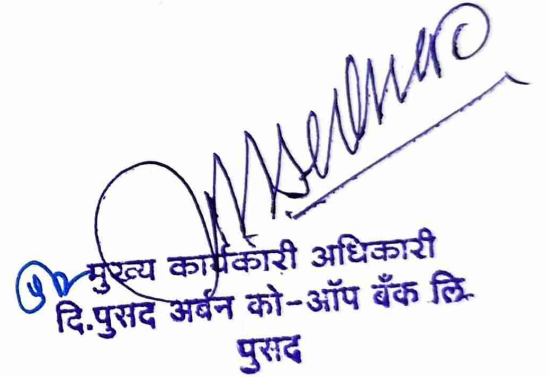 मुख्य कार्यकारी अधिकारी
दि.पुसद अर्बन को-ऑप बँक लि.
पुसद